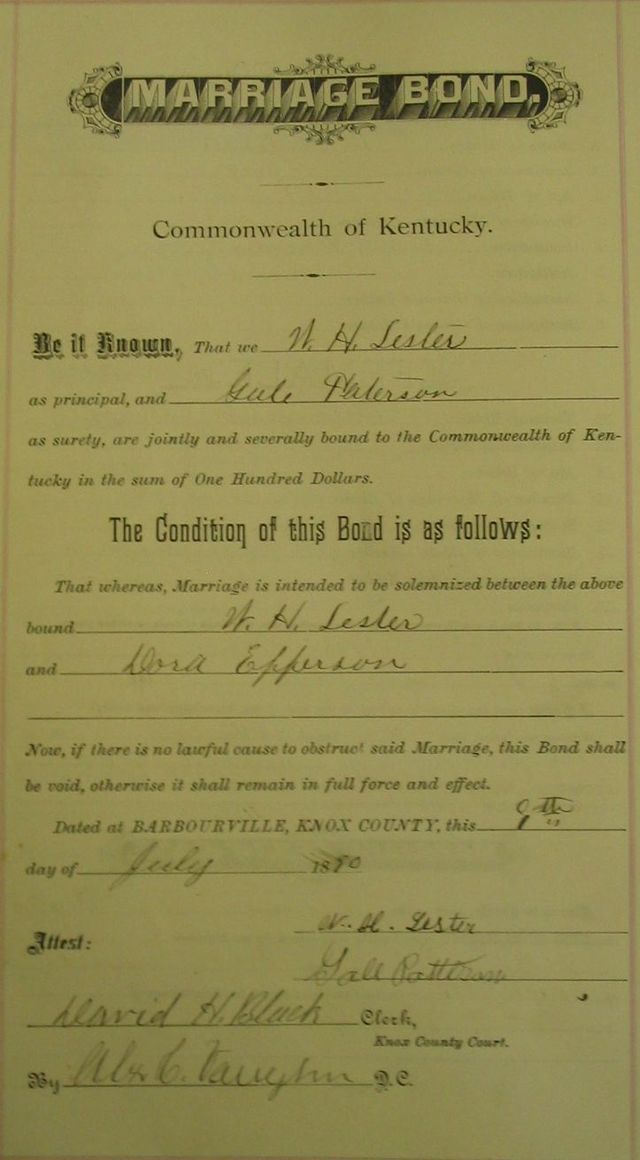 MARRIAGE BOND,
Commonwealth of Kentucky.
Be it Known, That we W. H. Lester
as principal, and Gale Paterson
as surety, are jointly and severally bound to the Commonwealth of Ken-
tucky in the sum of One Hundred Dollars.
The Condition of this Bond is as follows:
That whereas, Marriage is intended to be solemnized between the above
bound W. H. Lester
and Dora Epperson
Now, if there is no lawful cause to obstruct said Marriage, this Bond shall
be void, otherwise it shall remain in full force and effect.
Dated at BARBOURVILLE, KNOX COUNTY, this 9th
day of July
W. H. Lester
Attest:
Gale Patterson
David H. Black Clerk,
Knox County Court.
By Alx C. Vaughn D.C.